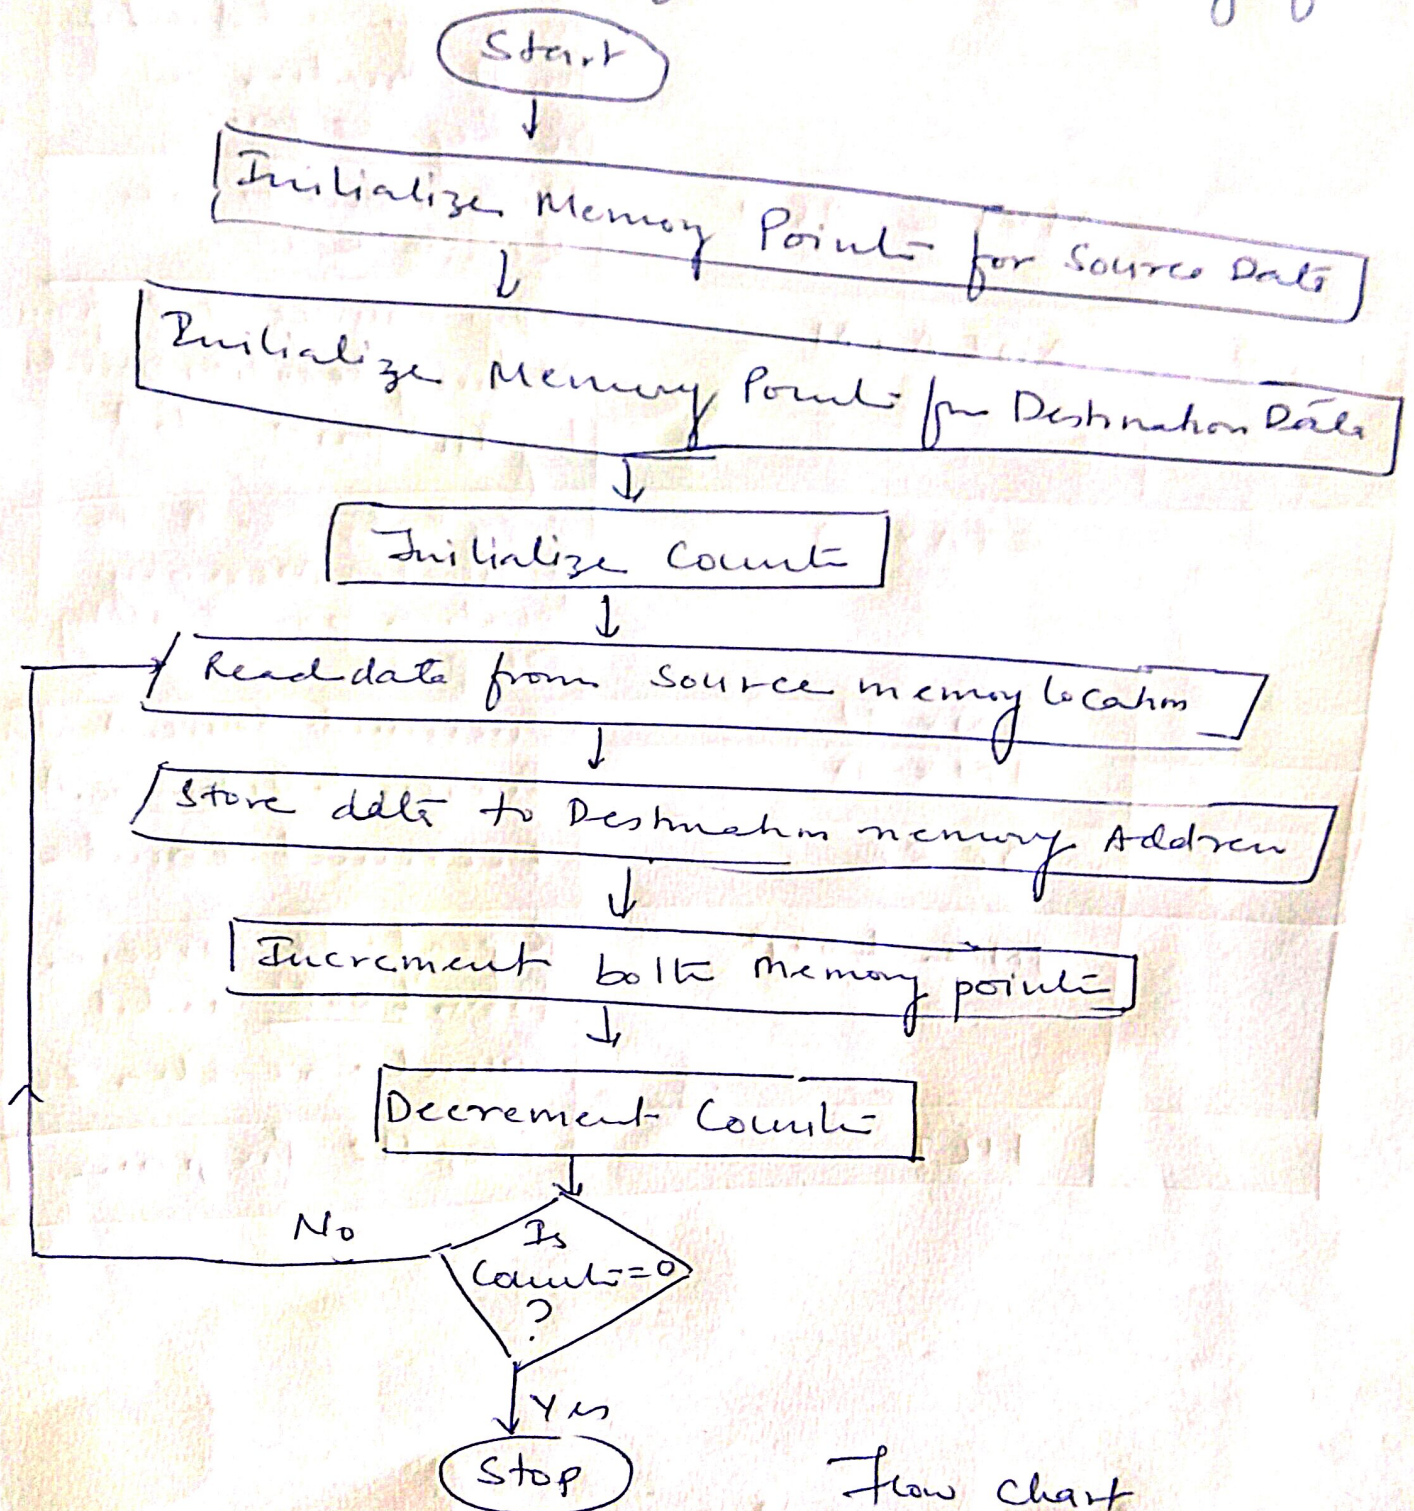 Start
Initialize Memory Pointer for Source Data
Initialize Memory Pointer for Destination Data
Initialize Counter
Read data from Source memory location
Store data to Destination memory Address
Increment both memory pointer
Decrement Counter
No
Is
Counter=0
?
Yes
Stop
Flow chart